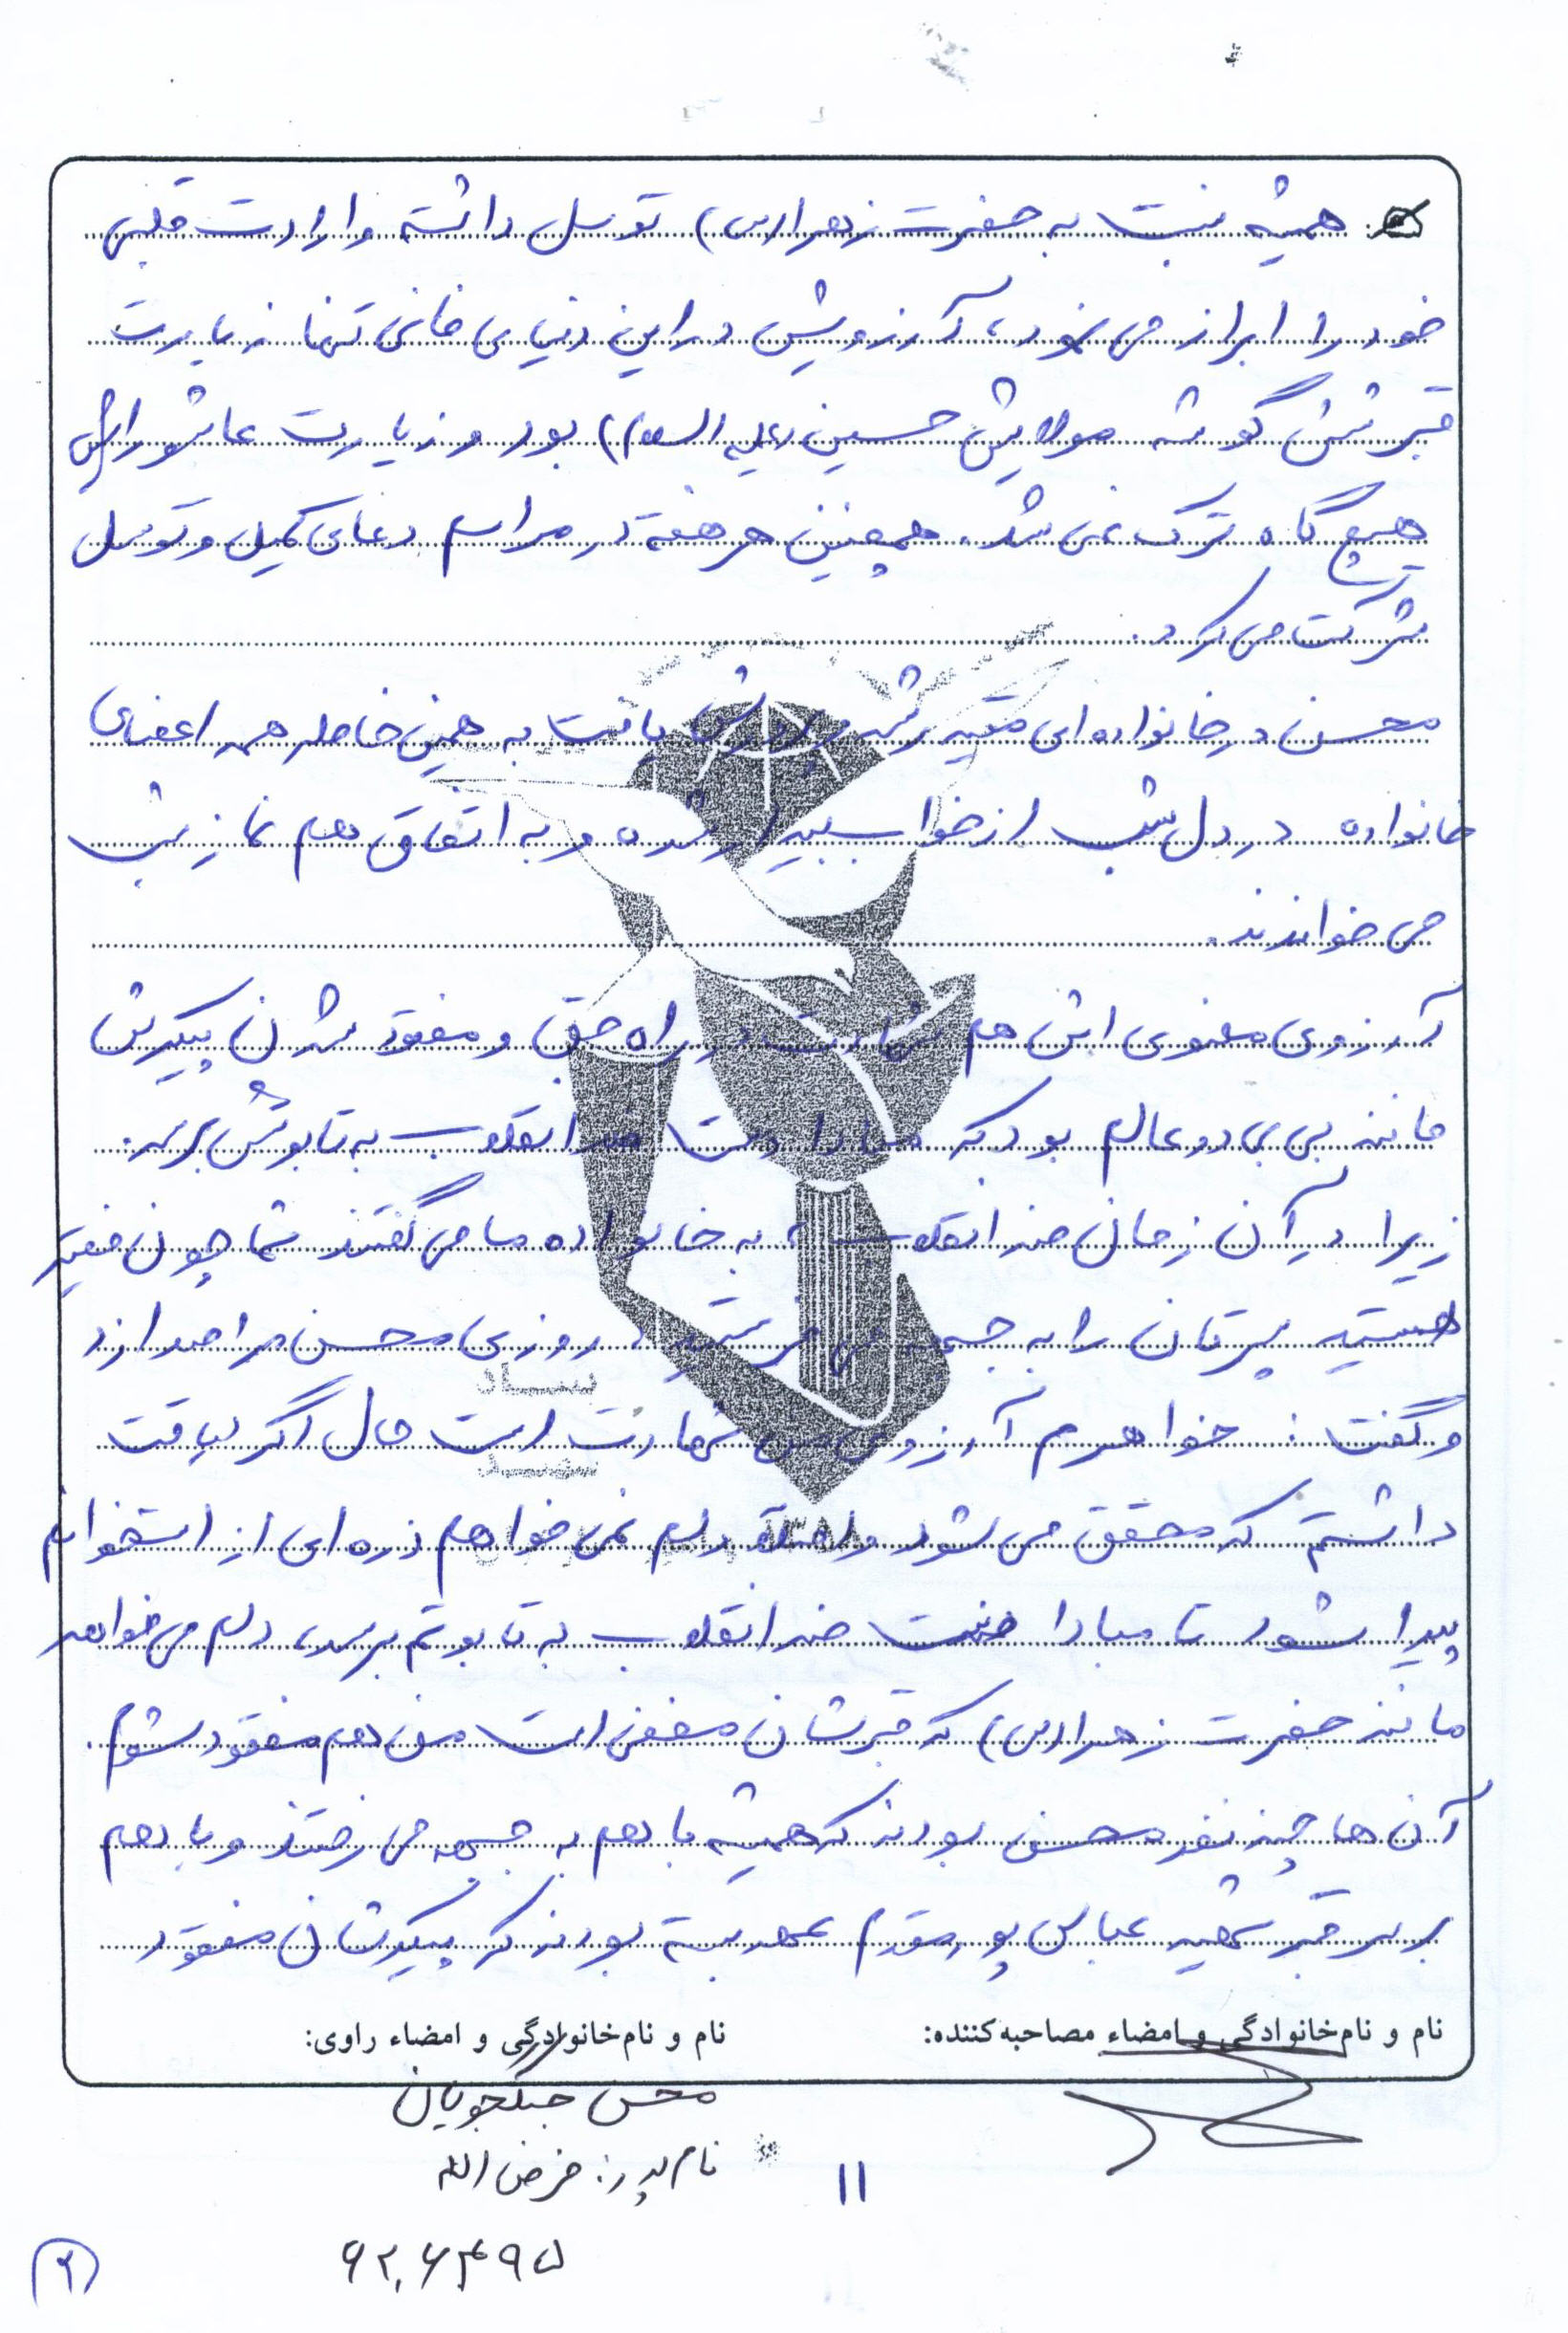 همیشه نسبت به حضرت زهرا (س) توسل داشته و ارادت قلبی
خود را ابراز می نمود، آرزویش در این دنیای فانی تنها زیارت
قبر شش گوشه مولایش حسین (علیه السلام) بود و زیارت عاشورایش
هیچ گاه ترک نمی شد. همچنین هر هفته در مراسم دعای کمیل و توسل
شرکت می کرد.
محسن در خانواده ای مقید رشد و پرورش یافت به همین خاطر همه اعضای
خانواده در دل شب از خواب بیدار شده و به اتفاق هم نماز شب
می خواندند.
آرزوی معنوی اش هم شهادت در راه حق و مفقود شدن پیکرش
مانند بی بی دو عالم بود که مبادا دست ضد انقلاب به تابوتش برسد.
زیرا در آن زمان ضد انقلاب، به خانواده ما می گفتند شما چون فقیر
هستید پسرتان را به جبهه می فرستید، روزی محسن مرا صدا زد
و گفت: خواهرم آرزوی من شهادت است حال اگر لیاقت
داشتم که محقق می شود و اصلاً دلم نمی خواهم ذره ای از استخوانم
پیدا شود تا مبادا دست ضد انقلاب به تابوتم برسد، دلم می خواهد
مانند حضرت زهرا (س) که قبرشان مخفی است من هم مفقود شوم.
آن ها چند نفر محسن بودند که همیشه با هم به جبهه می رفتند و با هم
بر سر قبر شهید عباس پورمقدم عهد بسته بودند که پیکرشان مفقود
نام و نام خانوادگی و امضاء مصاحبه کننده:
نام و نام خانوادگی و امضاء راوی:
محسن جنگجویان
نام پدر: فرض الله
۱۱
۶۲۰۶۴۹۵
۲